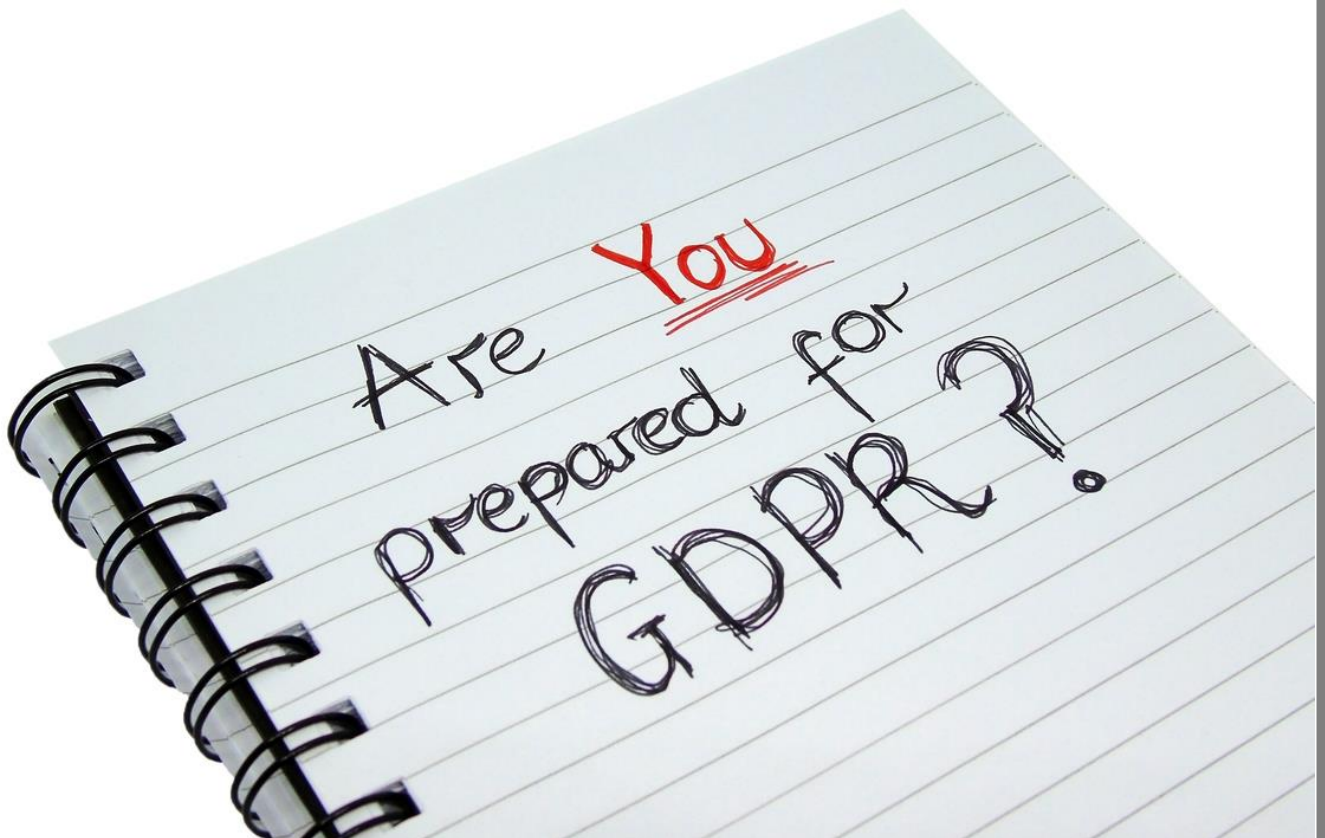 Are You
prepared for
GDPR?